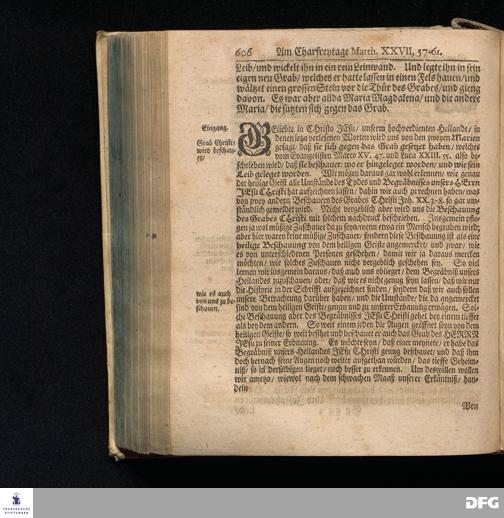 606 Am Charfreytage Matth. XXVII, 57-61.
Leib/ und wickelt ihn in ein rein Leinwand. Und legte ihn in sein
eigen neu Grab/ welches er hatte lassen in einen Fels hauen/ und
wältzet einen grossen Stein vor die Thür des Grabes/ und gieng
davon. Es war aber allda Maria Magdalena/ und die andere
Maria/ die satzten sich gegen das Grab.
Eingang.
Grab Christi
wird beschau-
et/
GEliebte in Christo JEsu/ unserm hochverdienten Heilande/ in
denen jetzo verlesenen Worten wird uns von den zweyen Marien
gesagt/ daß sie sich gegen das Grab gesetzet haben/ welches
vom Evangelisten Marco XV, 47. und Luca XXIII, 55. also be-
schrieben wird/ daß sie beschauet/ wo er hingeleget worden/ und wie sein
Leib geleget worden. Wir mögen daraus gar wohl erkennen/ wie genau
der heilige Geist alle Umstände des Todes und Begräbnisses unsers HErrn
JEsu Christi hat aufzeichnen lassen/ dahin wir auch zu rechnen haben/ was
von zwey andern Beschauern des Grabes Christi Joh. XX. 3-8. so gar um-
ständlich gemeldet wird. Nicht vergeblich aber wird uns die Beschauung
des Grabes Christi mit solchem nachdruck beschrieben. Insgemein pfle-
gen ja wol müßige Zuschauer da zu seyn/ wenn etwa ein Mensch begraben wird;
aber hier waren keine müßige Zuschauer/ sondern diese Beschauung ist als eine
heilige Beschauung von dem heiligen Geiste angemercket/ und zwar/ wie
es von unterschiedenen Personen geschehen/ damit wir ja daraus mercken
möchten/ wie solches Zuschauen nicht vergeblich geschehen sey. So viel
wie es auch
von uns zu be-
schauen.
lernen wir insgemein daraus/ daß auch uns oblieget/ dem Begräbniß unsers
Heilandes zuzuschauen/ oder/ daß wir es nicht genug seyn lassen/ daß wir nur
die Historie in der Schrifft aufgezeichnet finden/ sondern daß wir auch sollen
unsere Betrachtung darüber haben/ und die Umstände/ die da angemercket
sind von dem heiligen Geiste/ genau und zu unserer Erbauung erwägen. Sol-
che Beschauung aber des Begräbnisses JEsu Christi gehet bey einem tieffer
als bey dem andern. So weit einem jeden die Augen geöffnet seyn von dem
heiligen Geiste/ so weit besihet und beschauet er auch das Grab des HERRN
JEsu zu seiner Erbauung. Es möchte seyn/ daß einer meynete/ er habe das
Begräbniß unsers Heilandes JEsu Christi genug beschauet/ und daß ihm
doch hernach seine Augen noch weiter aufgethan würden/ das tieffe Geheim-
niß/ so in derselbigen lieget/ noch besser zu erkennen. Um deswillen wollen
wir anjetzo/ wiewol nach dem schwachen Maaß unserer Erkäntniß/ han-
deln
Von
FRANCKESCHE
STIFTUNGEN
DFG